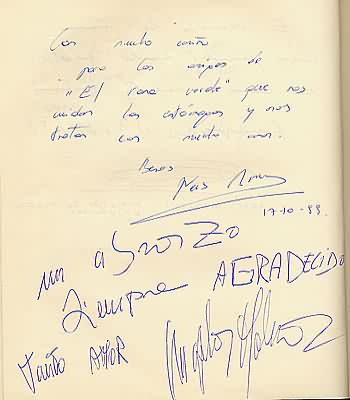 Con mucho cariño
para los amigos de
"El rana verde" que nos
cuidan los estómagos y nos
tratan con mucho amor.
Besos
17-10-99.
un abrazo
Siempre AGRADECIDO
AMOR